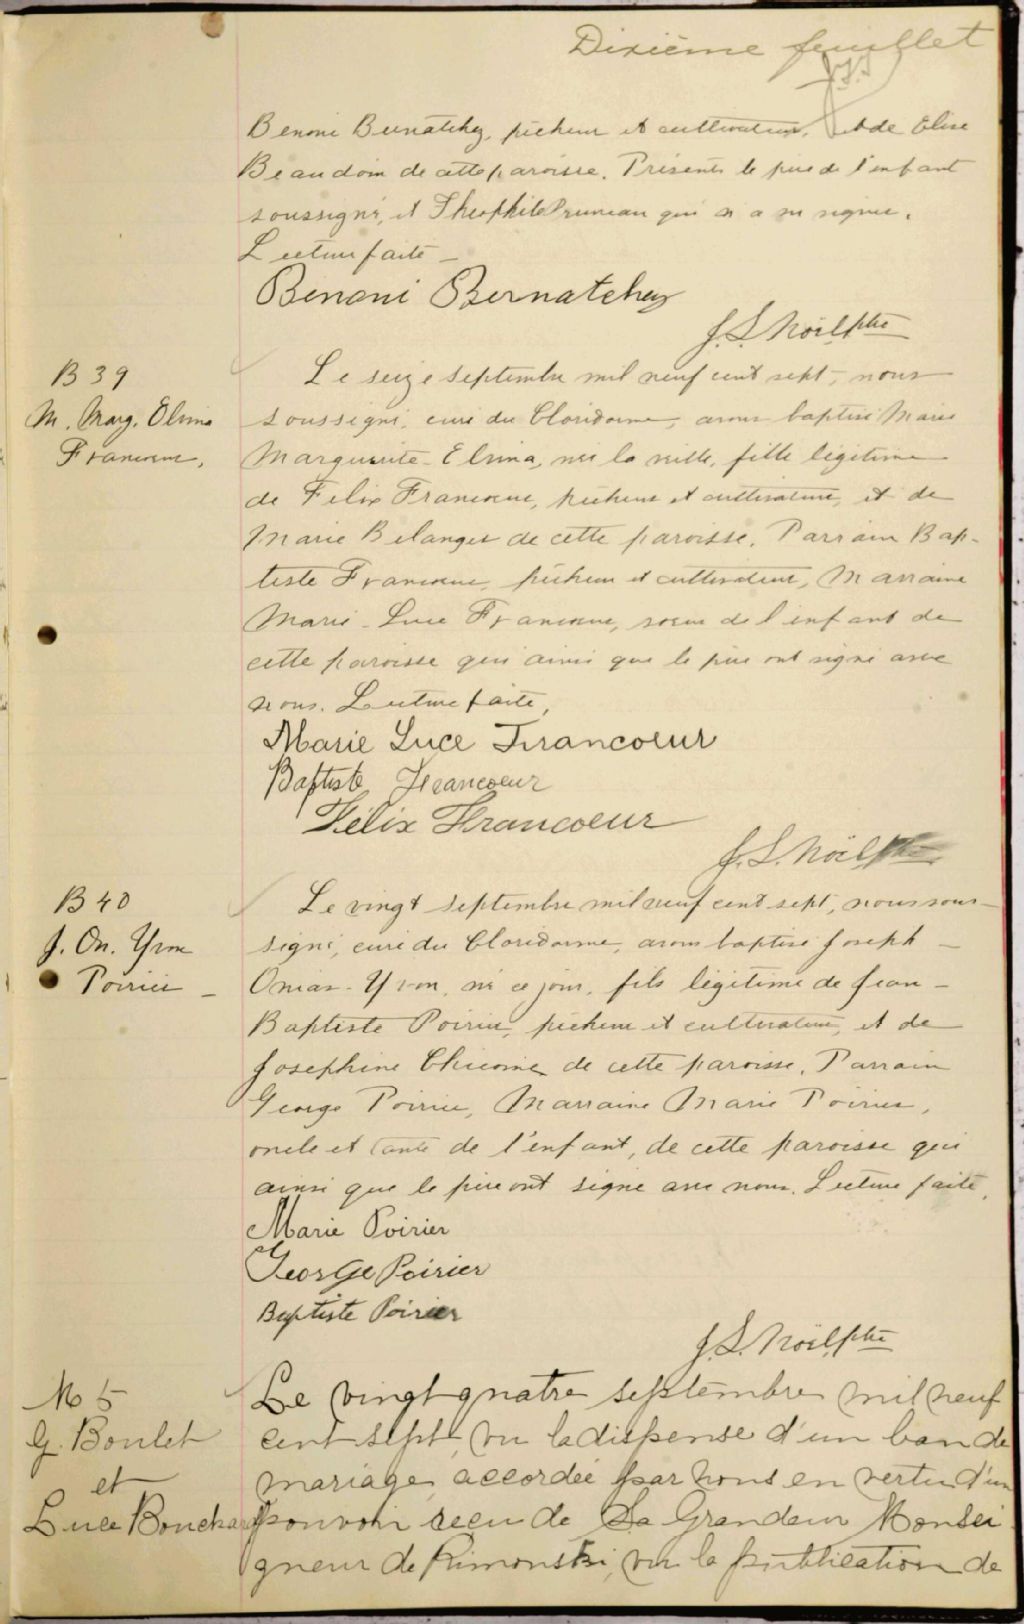 Dixième feuillet
J.S.
Benoni Bernatchez, pêcheur et cultivateur, et de Elise
Beaudoin de cette paroisse. Présents le père de l'enfant
soussigné, et Théophile Pruneau qui n'a su signer.
Lecture faite —
Benoni Bernatchez
J. S. Noël, ptre
B 39
M. Marg. Elvina
Francoeur,
Le seize septembre mil neuf cent sept, nous
soussigné, curé du Cloridorme, avons baptisé Marie
Marguerite-Elvina, née la veille, fille légitime
de Felix Francoeur, pêcheur et cultivateur, et de
Marie Belanger de cette paroisse. Parrain Bap-
tiste Francoeur, pêcheur et cultivateur, Marraine
Marie-Luce Francoeur, soeur de l'enfant de
cette paroisse qui ainsi que le père ont signé avec
nous. Lecture faite,
Marie Luce Francoeur
Baptiste Francoeur
Félix Francoeur
J. S. Noël ptre
B 40
J. On. Yvon
Poirier —
Le vingt septembre mil neuf cent sept, nous sous-
signé, curé du Cloridorme, avons baptisé Joseph —
Onias-Yvon, né ce jour, fils légitime de Jean-
Baptiste Poirier, pêcheur et cultivateur, et de
Josephine Chicoine de cette paroisse. Parrain
George Poirier, Marraine Marie Poirier,
oncle et tante de l'enfant, de cette paroisse qui
ainsi que le père ont signé avec nous. Lecture faite,
Marie Poirier
George Poirier
Baptiste Poirier
J. S. Noël, ptre
M 5
G. Boulet
et
Luce Bouchard
Le vingt quatre septembre mil neuf
cent sept, vu la dispense d'un ban de
mariage, accordée par nous en vertu d'un
pouvoir reçu de Sa Grandeur Monsei-
gneur de Rimouski, vu la publication de